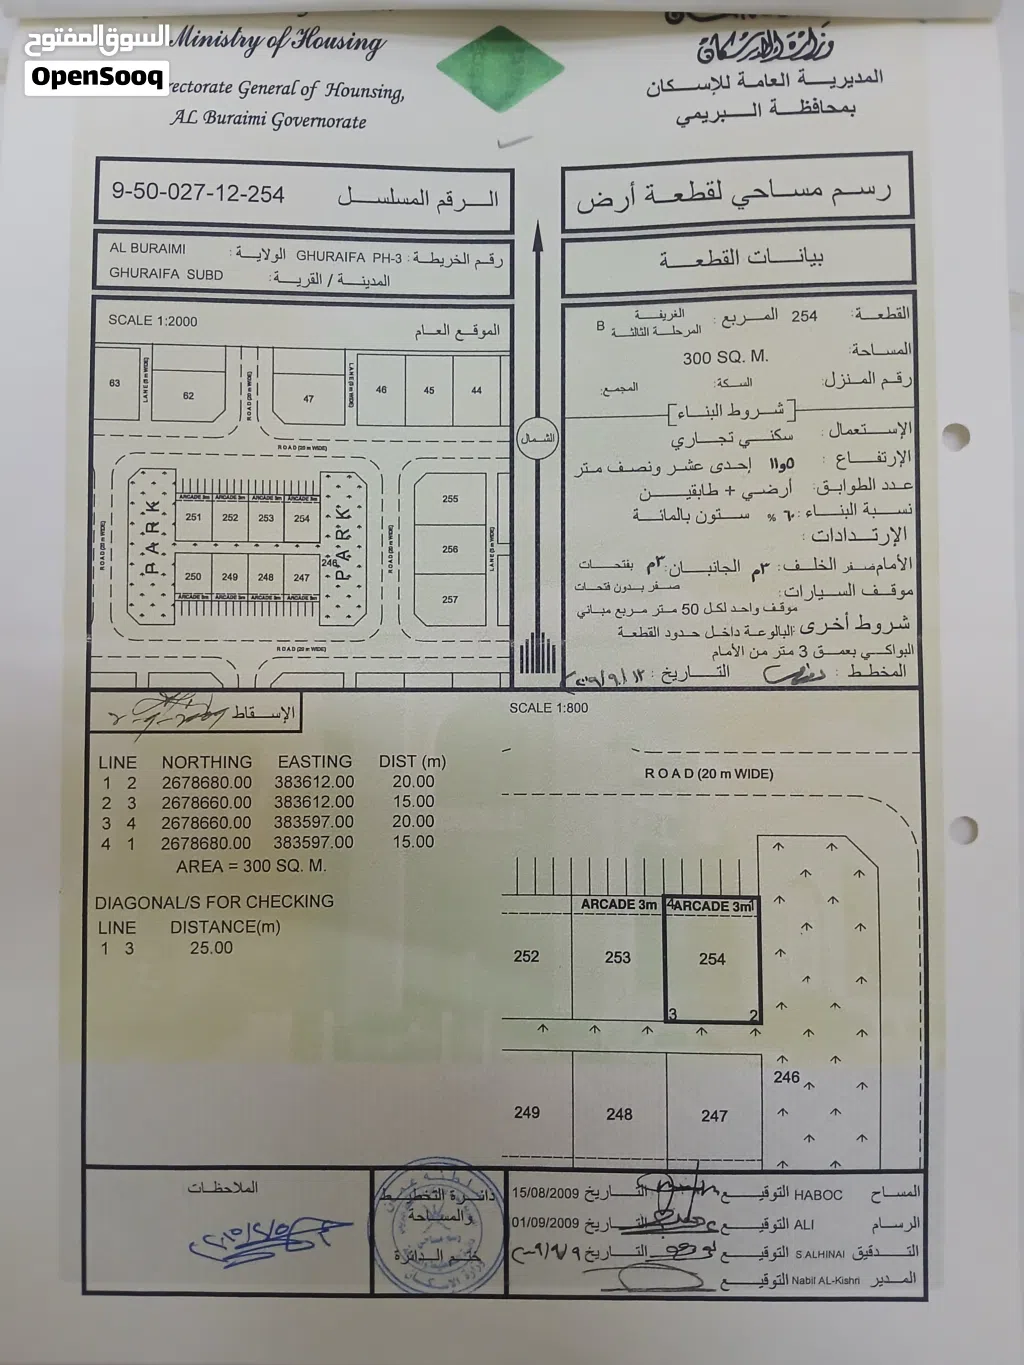 السوق المفتوح
OpenSooq
Ministry of Housing
rectorate General of Hounsing,
AL Buraimi Governorate
وزارة الإسكان
المديرية العامة للإسكان
بمحافظة البريمي
رسم مساحي لقطعة أرض
الرقم المسلسل 9-50-027-12-254
بيانات القطعة
رقم الخريطة: GHURAIFA PH-3 الولاية: AL BURAIMI
المدينة / القرية: GHURAIFA SUBD
SCALE 1:2000
الموقع العام
63
LANE (5 m WIDE)
62
ROAD (20 m WIDE)
47
LANE (5 m WIDE)
46
45
44
ROAD (20 m WIDE)
PARK
ARCADE 3m ARCADE 3m ARCADE 3m ARCADE 3m
251 252 253 254
246
PARK
250 249 248 247
ARCADE 3m ARCADE 3m ARCADE 3m ARCADE 3m
ROAD (20 m WIDE)
ROAD (20 m WIDE)
255
256
257
ROAD (20 m WIDE)
الشمال
القطعة: 254 المربع: الغريفة المرحلة الثالثة B
المساحة: 300 SQ. M.
رقم المنزل: السكة: المجمع:
[شروط البناء]
الإستعمال: سكني تجاري
الإرتفاع: ١١و٥ إحدى عشر ونصف متر
عدد الطوابق: أرضي + طابقين
نسبة البناء: ٦٠ % ستون بالمائة
الإرتدادات:
الأمام صفر الخلف: ٣م الجانبان: ٣م بفتحات
صفر بدون فتحات
موقف السيارات:
موقف واحد لكل 50 متر مربع مباني
شروط أخرى: البالوعة داخل حدود القطعة
البواكي بعمق 3 متر من الأمام
المخطط: التاريخ:
الإسقاط
SCALE 1:800
LINE NORTHING EASTING DIST (m)
1 2 2678680.00 383612.00 20.00
2 3 2678660.00 383612.00 15.00
3 4 2678660.00 383597.00 20.00
4 1 2678680.00 383597.00 15.00
AREA = 300 SQ. M.
DIAGONAL/S FOR CHECKING
LINE DISTANCE(m)
1 3 25.00
ROAD (20 m WIDE)
ARCADE 3m 4 ARCADE 3m 1
252 253 254
3 2
246
249 248 247
الملاحظات
دائرة التخطيط
والمساحة
ختم الدائرة
المساح HABOC التوقيع التاريخ 15/08/2009
الرسام ALI التوقيع التاريخ 01/09/2009
التدقيق S.ALHINAI التوقيع التاريخ
المدير Nabil AL-Kishri التوقيع